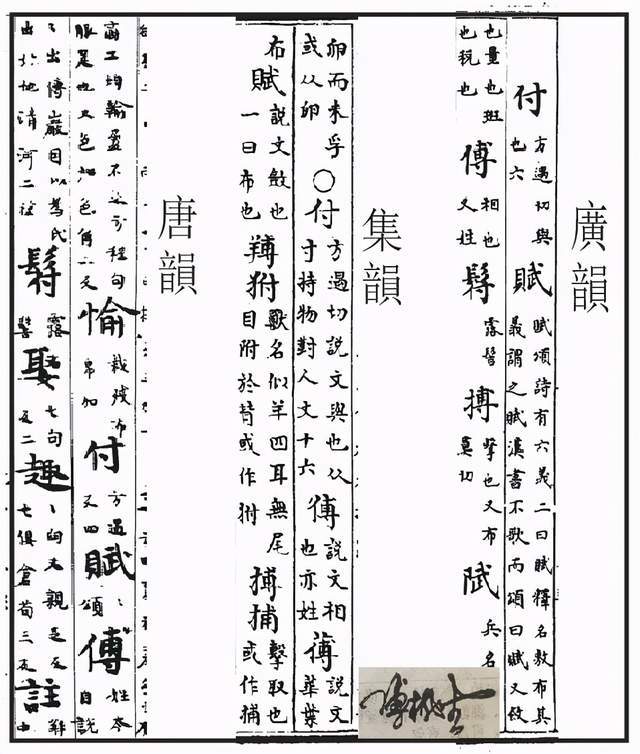 廣韻
付
方遇切與
也六
賦
賦頌詩有六義二曰賦釋名敷布其
義謂之賦漢書不歌而頌曰賦又斂
也量也班
也稅也
傅
相也
又姓
露髻
搏
擊也又布
莫切
兵名
集韻
卵而未孚
或从卵
○付
方遇切說文與也从
寸持物對人文十六
傅
說文相
也亦姓
說文
華葉
布
賦
說文斂也
一曰布也
獸名似羊四耳無尾
目附於背或作
搏捕
擊取也
或作
唐韻
商工均輸盈不足方程句
股是也又色句色角二反
付
方遇
又四
賦
〻頌
傅
姓本
自說
〻出傅巖因以為氏
出北地清河二望
娶
七句
反二
趣
〻向又親足反
七俱倉苟三反
註